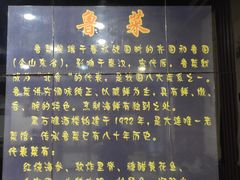 鲁菜
鲁菜起源于春秋战国时的齐国和鲁国
(今山东省),形成于秦汉,宋代后,鲁菜就成
为"北食"的代表,是我国八大菜系之一。
鲁菜讲究调味纯正,以咸鲜为主,具有鲜、嫩、
香、脆的特色。烹制海鲜有独到之处。
酒楼始建于1922年,是大连唯一老
菜馆,传承鲁菜已有八十年历史。
代表菜有:
红烧海参、软炸里脊、糖醋黄花鱼